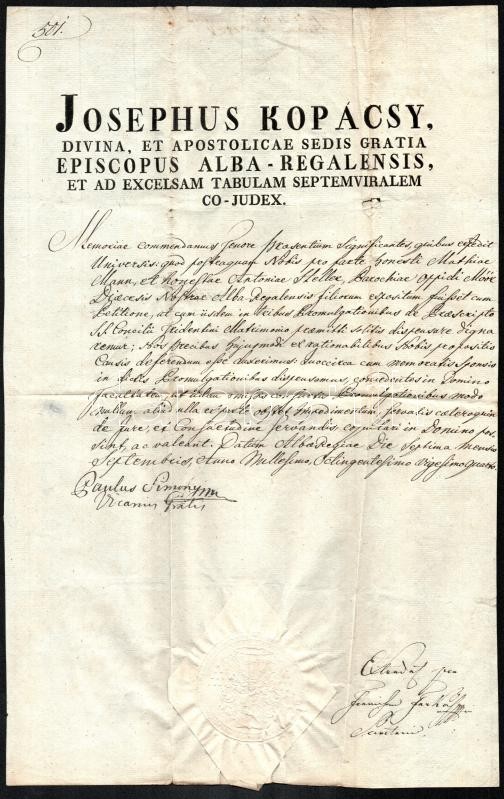 501.
JOSEPHUS KOPÁCSY,
DIVINA, ET APOSTOLICAE SEDIS GRATIA
EPISCOPUS ALBA-REGALENSIS,
ET AD EXCELSAM TABULAM SEPTEMVIRALEM
CO-JUDEX.
Memoriae commendamus tenore praesentium significantes, quibus expedit
Universis: quod posteaquam Nobis pro parte honesti Mathiae
Mann, et Honestae Antoniae Steller, Parochiae Oppidi Moór
Dioecesis Nostrae Alba-Regalensis filiorum expositum fuisset cum
Petitione, ut cum iisdem in tribus Promulgationibus de Praescripto
SS. Concilii Tridentini Matrimonio praemitti solitis dispensare digna
remur; Nos precibus hujusmodi et rationabilibus Nobis propositis
Causis deferendum esse duximus: succirca cum memoratis Sponsis
in dictis Promulgationibus dispensamus, concedentes in Domino
facultatem, ut iidem omissis Promulgationibus modo
nullum aliud ullo ex parte obstet impedimentum, servatis caeteroquin
de jure, et Consuetudine servandis copulari in Domino pos
sint, ac valeant. Datum Albae Regiae Die Septima mensis
Septembris, Anno Millesimo, Octingentesimo Vigesimo quarto.
Paulus Simonyi mp
Vicarius
Extradat per
Franciscum Farkas